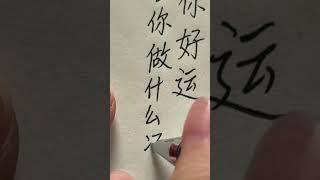 你好运
你做什么